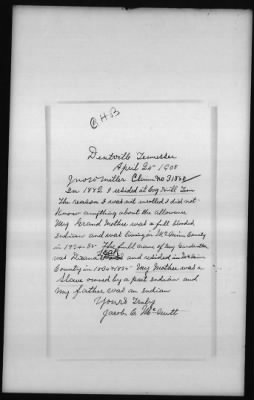 C H B
Dentville Tennessee
April 25" 1908
Jno W Miller Claim no 31822
In 1882 I resided at Hill Tenn
The reason I was not enrolled I did not
Know anything about the allowance
My Grand Mother was a full blooded
Indian and was living in McMinn County
in 1834-35 The full name of my Grandmother
was and resided in McMinn
County in 1834 & 1835 My Mother was a
Slave owned by a part Indian and
my father was an Indian
Yours Truly
Jacob C McNutt